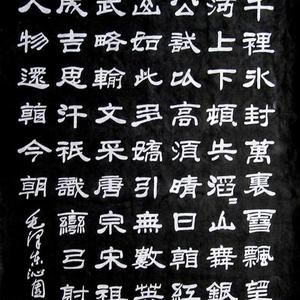 千裡氷封萬裏雪飄望
河上下頓失滔山舞銀
公試比高須晴日看紅
山如此多嬌引無數英
武略輸文采唐宗宋祖
成吉思汗祇識彎弓射
人物還看今朝
毛澤東沁園